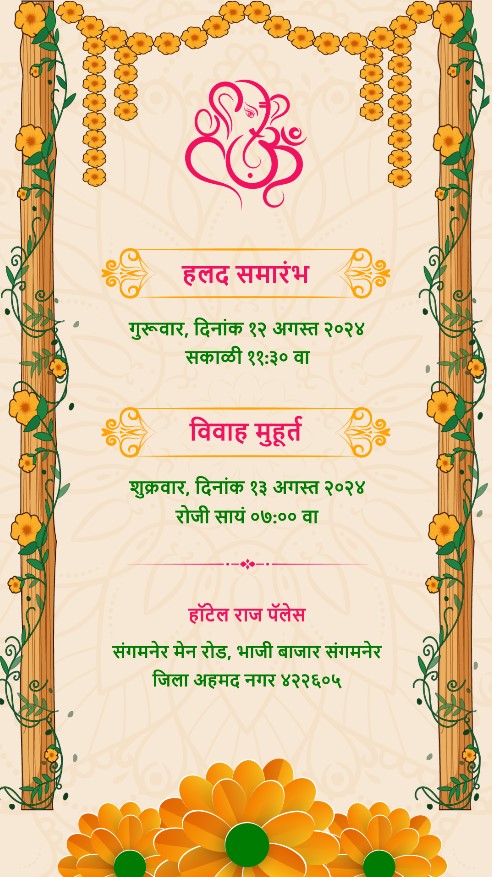 हलद समारंभ
गुरूवार, दिनांक १२ अगस्त २०२४
सकाळी ११:३० वा
विवाह मुहूर्त
शुक्रवार, दिनांक १३ अगस्त २०२४
रोजी सायं ०७:०० वा
हॉटेल राज पॅलेस
संगमनेर मेन रोड, भाजी बाजार संगमनेर
जिला अहमद नगर ४२२६०५